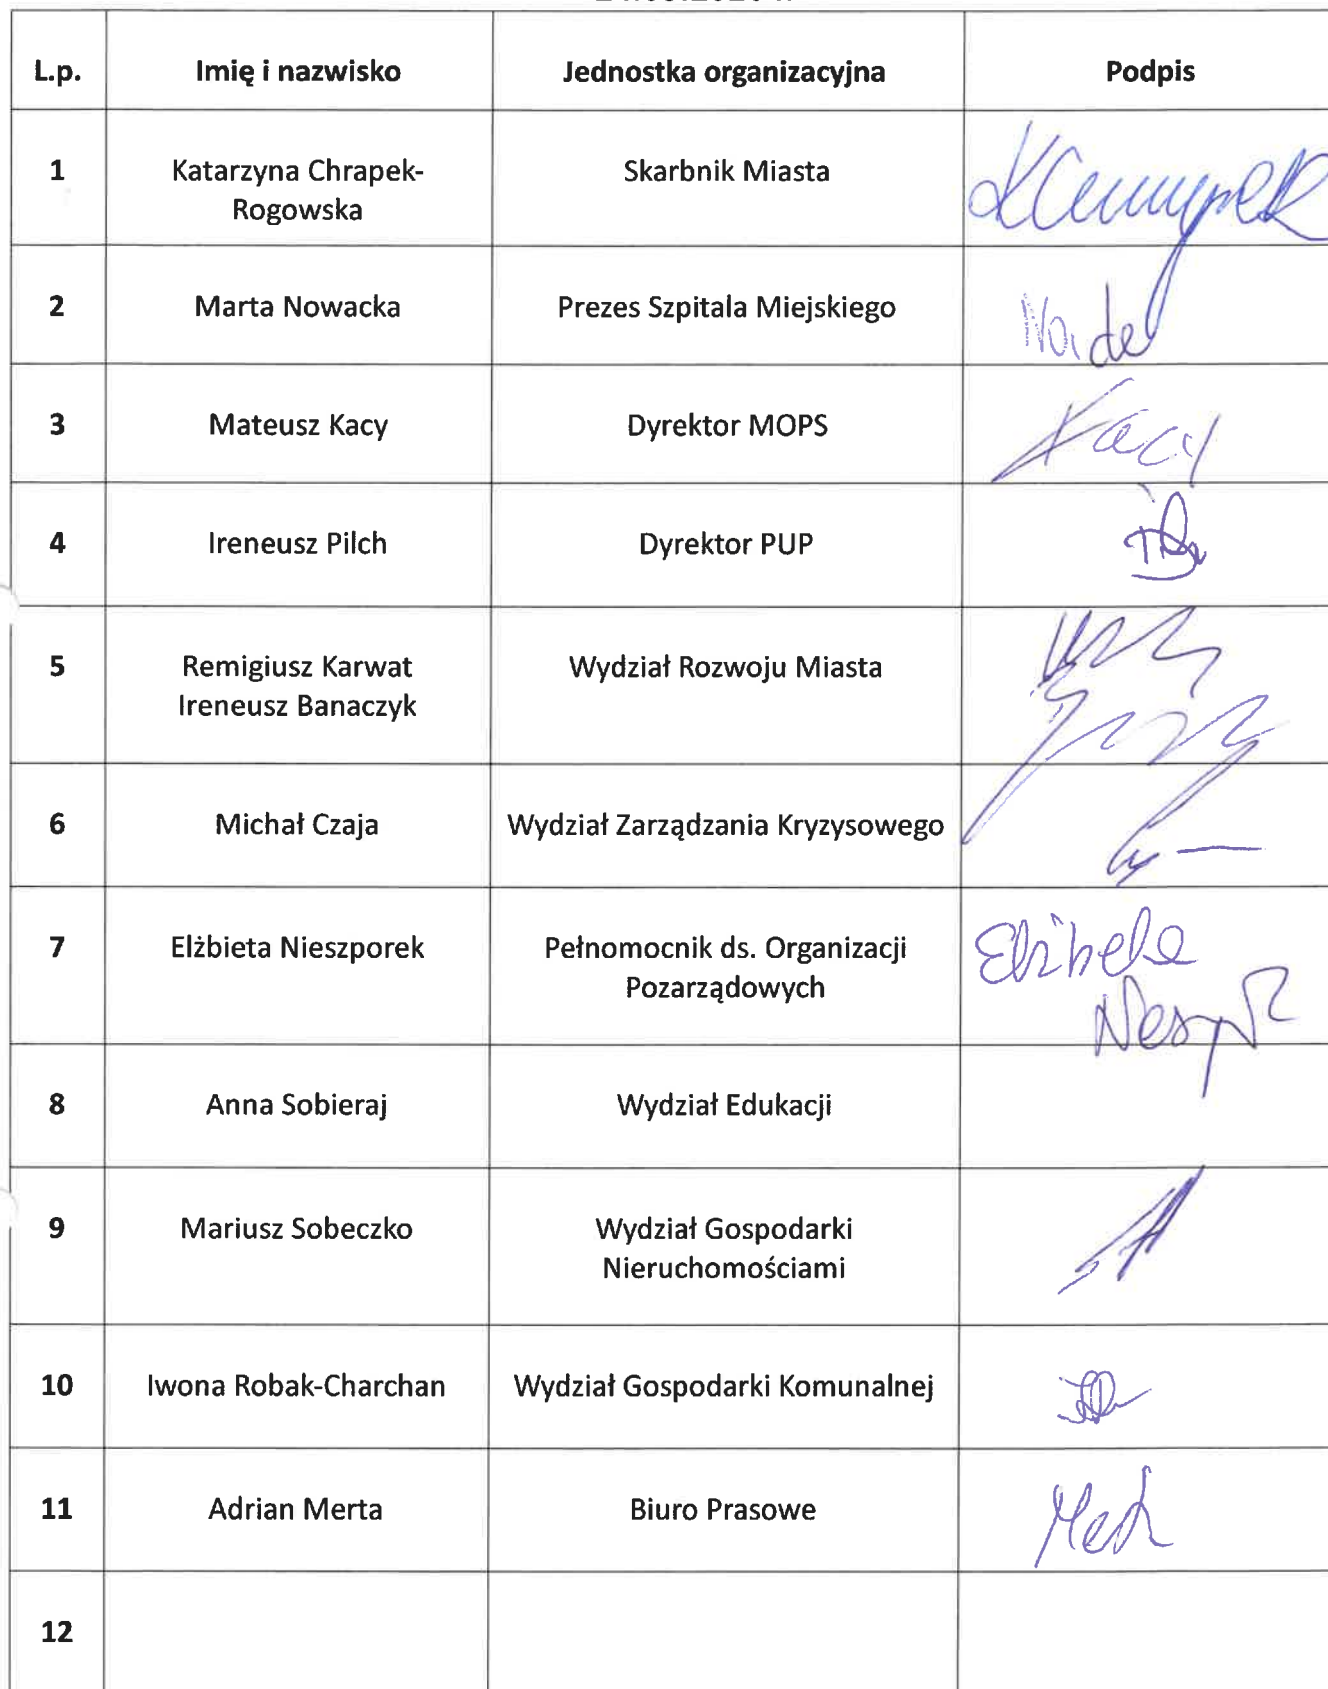 L.p. Imię i nazwisko Jednostka organizacyjna Podpis
1 Katarzyna Chrapek- Skarbnik Miasta
Rogowska
2 Marta Nowacka Prezes Szpitala Miejskiego
3 Mateusz Kacy Dyrektor MOPS Kacy
4 Ireneusz Pilch Dyrektor PUP
5 Remigiusz Karwat Wydział Rozwoju Miasta
Ireneusz Banaczyk
6 Michał Czaja Wydział Zarządzania Kryzysowego
7 Elżbieta Nieszporek Pełnomocnik ds. Organizacji
Pozarządowych
8 Anna Sobieraj Wydział Edukacji
9 Mariusz Sobeczko Wydział Gospodarki
Nieruchomościami
10 Iwona Robak-Charchan Wydział Gospodarki Komunalnej
11 Adrian Merta Biuro Prasowe
12